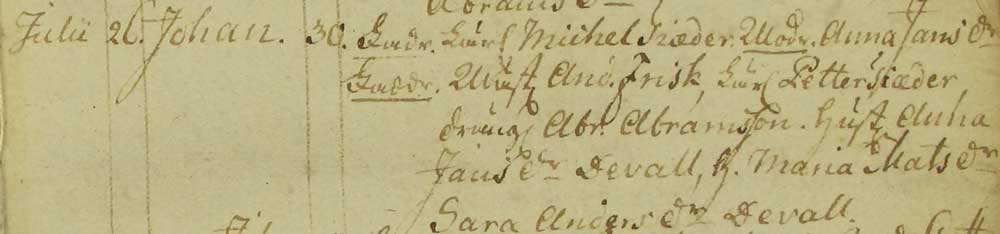 Abrams dr
Julii 26. Johan. 30. Fadr. Karl Michel Kiæder. Modr. Anna Jans dr
Faddr. Must. And. Frisk, Karl Petter Kiæder
dräng Abr. Abramsson. Hust. Anna
Jans dr Devall, H. Maria Mats dr
Sara Anders dr Devall.